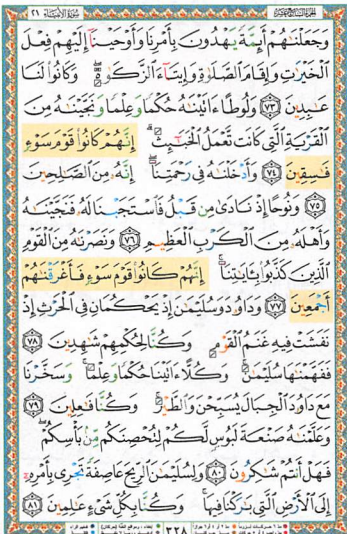 سُورَةُ الأَنبِيَاءِ ٢١
وَجَعَلْنَٰهُمْ أَئِمَّةً يَهْدُونَ بِأَمْرِنَا وَأَوْحَيْنَآ إِلَيْهِمْ فِعْلَ
ٱلْخَيْرَٰتِ وَإِقَامَ ٱلصَّلَوٰةِ وَإِيتَآءَ ٱلزَّكَوٰةِۖ وَكَانُوا۟ لَنَا
عَٰبِدِينَ ٧٣ وَلُوطًا ءَاتَيْنَٰهُ حُكْمًا وَعِلْمًا وَنَجَّيْنَٰهُ مِنَ
ٱلْقَرْيَةِ ٱلَّتِى كَانَت تَّعْمَلُ ٱلْخَبَٰٓئِثَۗ إِنَّهُمْ كَانُوا۟ قَوْمَ سَوْءٍ
فَٰسِقِينَ ٧٤ وَأَدْخَلْنَٰهُ فِى رَحْمَتِنَآۖ إِنَّهُۥ مِنَ ٱلصَّٰلِحِينَ
٧٥ وَنُوحًا إِذْ نَادَىٰ مِن قَبْلُ فَٱسْتَجَبْنَا لَهُۥ فَنَجَّيْنَٰهُ
وَأَهْلَهُۥ مِنَ ٱلْكَرْبِ ٱلْعَظِيمِ ٧٦ وَنَصَرْنَٰهُ مِنَ ٱلْقَوْمِ
ٱلَّذِينَ كَذَّبُوا۟ بِـَٔايَٰتِنَآۚ إِنَّهُمْ كَانُوا۟ قَوْمَ سَوْءٍ فَأَغْرَقْنَٰهُمْ
أَجْمَعِينَ ٧٧ وَدَاوُۥدَ وَسُلَيْمَٰنَ إِذْ يَحْكُمَانِ فِى ٱلْحَرْثِ إِذْ
نَفَشَتْ فِيهِ غَنَمُ ٱلْقَوْمِ وَكُنَّا لِحُكْمِهِمْ شَٰهِدِينَ ٧٨
فَفَهَّمْنَٰهَا سُلَيْمَٰنَۚ وَكُلًّا ءَاتَيْنَا حُكْمًا وَعِلْمًاۚ وَسَخَّرْنَا
مَعَ دَاوُۥدَ ٱلْجِبَالَ يُسَبِّحْنَ وَٱلطَّيْرَۚ وَكُنَّا فَٰعِلِينَ ٧٩
وَعَلَّمْنَٰهُ صَنْعَةَ لَبُوسٍ لَّكُمْ لِتُحْصِنَكُم مِّنۢ بَأْسِكُمْۖ
فَهَلْ أَنتُمْ شَٰكِرُونَ ٨٠ وَلِسُلَيْمَٰنَ ٱلرِّيحَ عَاصِفَةً تَجْرِى بِأَمْرِهِۦٓ
إِلَى ٱلْأَرْضِ ٱلَّتِى بَٰرَكْنَا فِيهَاۚ وَكُنَّا بِكُلِّ شَىْءٍ عَٰلِمِينَ ٨١
٣٢٨